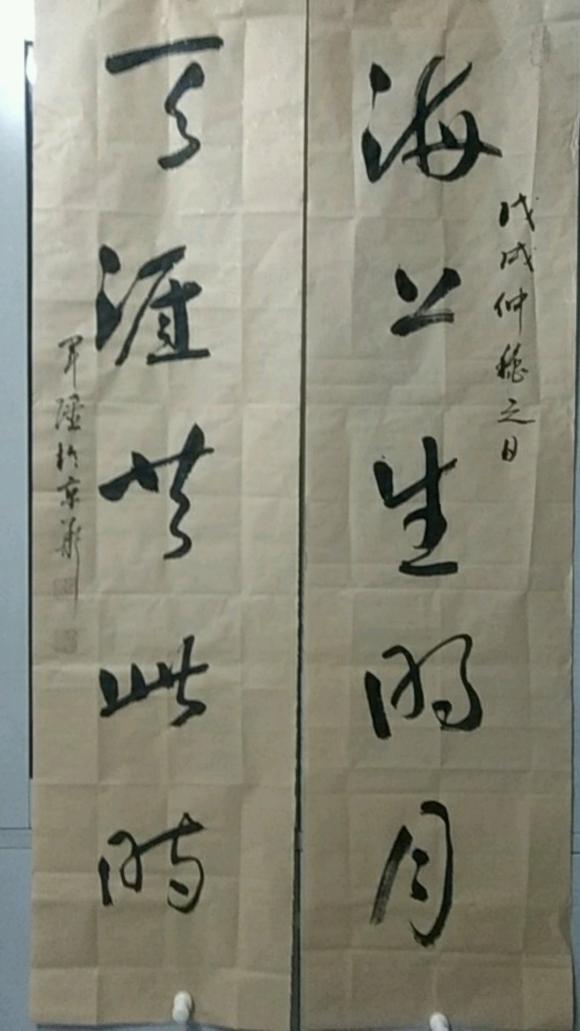 戊戌仲穐之日
海上生明月
天涯共此时
于京华